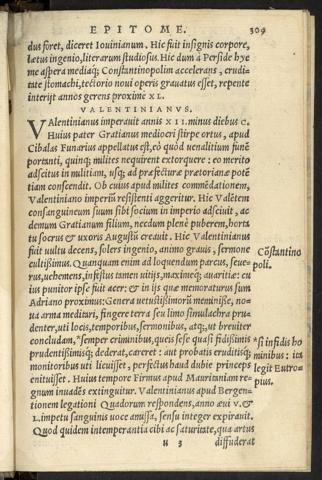 EPITOME. 309
dus foret, diceret Iouinianum. Hic fuit insignis corpore,
lætus ingenio, literarum studiosus. Hic dum à Perside hye
me aspera mediaq; Constantinopolim accelerans, crudi-
tate stomachi, tectorio noui operis grauatus esset, repente
interijt annos gerens proxime XL.
VALENTINIANVS.
Valentinianus imperauit annis XII. minus diebus C.
Huius pater Gratianus mediocri stirpe ortus, apud
Cibalas Funarius appellatus est, eò quòd uenalitium funē
portanti, quinq; milites nequirent extorquere: eo merito
adscitus in militiam, usq; ad præfecturæ prætorianæ potē
tiam conscendit. Ob cuius apud milites commēdationem,
Valentiniano imperiū resistenti aggeritur. Hic Valētem
consanguineum suum sibi socium in imperio adsciuit, ac
demum Gratianum filium, necdum plenè puberem, horta
tu socrus & uxoris Augustū creauit. Hic Valentinianus
fuit uultu decens, solers ingenio, animo grauis, sermone
cultißimus. Quanquam enim ad loquendum parcus, seue-
rus, uehemens, infestus tamen uitijs, maximeq; auaritiæ: cu
ius punitor ipse fuit acer: & in ijs quæ memoraturus sum
Adriano proximus: Genera uetustißimorū meminiße, no-
ua arma meditari, fingere terra seu limo simulachra pru-
denter, uti locis, temporibus, sermonibus, atq;, ut breuiter
concludam, *semper criminibus, queis sese quasi fidißimis
prudentißimisq; dederat, careret: aut probatis eruditisq;
monitoribus uti licuisset, perfectus haud dubie princeps
enituisset. Huius tempore Firmus apud Mauritaniam re-
gnum inuadēs extinguitur. Valentinianus apud Bergen-
tionem legationi Quadorum respondens, anno æui V. &
L. impetu sanguinis uoce amissa, sensu integer expirauit.
Quod quidem intemperantia cibi ac saturitate, qua artus
H 3 diffuderat
Cōstantino
poli.
*si infidis ho
minibus: ita
legit Eutro-
pius.